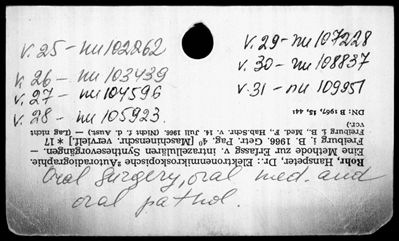 v. 25 - nu 102862
v. 26 - nu 103439
v. 27 - nu 104596
v. 28 - nu 105923
v. 29 - nu 107228
v. 30 - nu 108837
v. 31 - nu 109951
Rohr, Hanspeter, Dr.: Elektronenmikroskopische Autoradiographie.
Eine Methode zur Erfassg v. intrazellulären Synthesevorgängen. —
Freiburg i. B. 1966. Getr. Pag. 4° [Maschinenschr. vervielf.] * 17
Freiburg i. B., Med. F., Hab.Schr. v. 14. Juli 1966 (Nicht f. d. Aust.) — (Lag) nicht
vcr.)
DN: B 1967, 15, 441
Oral surgery, oral med. and
oral pathol.